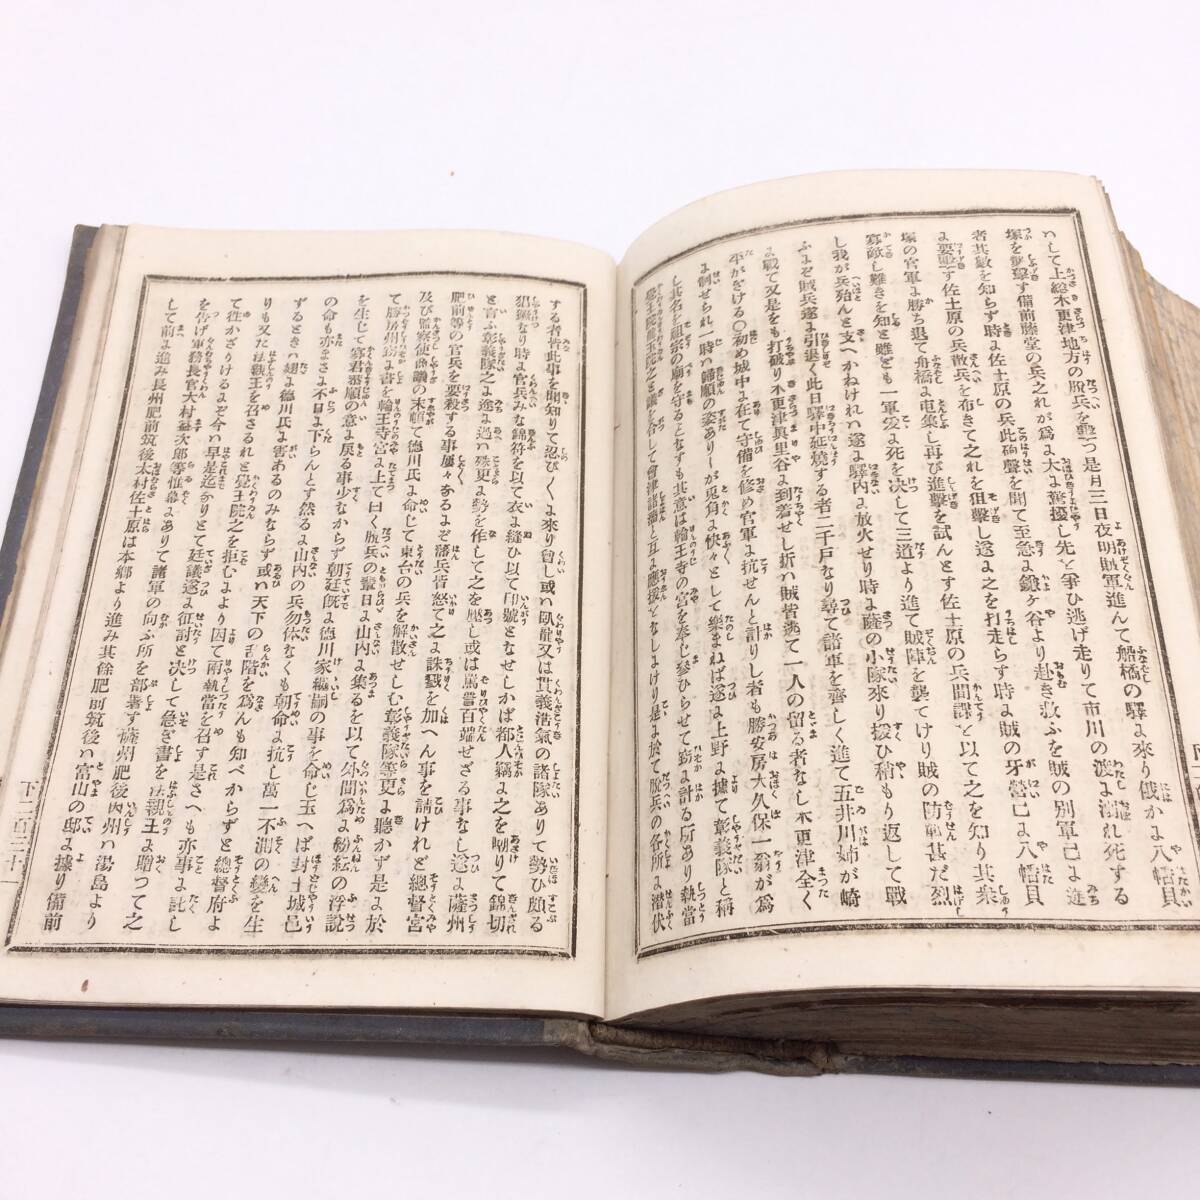 して上総木更津地方の脱兵を撃つ是月三日夜明賊軍進んて船橋の驛ょ來り俄かょ八幡貝
塚を襲撃す備前藤堂の兵之れが爲ょ大ょ驚擾し先と爭ひ逃げ走りて市川の渡ょ溺れ死する
者其數を知らず時ょ佐土原の兵此砲聲を聞て至急ょ鎌ヶ谷より赴き救ふを賊の別軍已ょ進
ょ要撃す佐土原の兵散兵を布きて之れを狙擊し遂ょ之を打走らす時ょ賊の牙營已ょ八幡貝
塚の官軍ょ勝ち退て舟橋ょ屯集し再び進擊を試んとす佐土原の兵間諜と以て之を知り共衆
寡敵し難きを知と雖ども一軍爰ょ死を决して三道より進て賊陣を襲てけり賊の防戰甚だ烈
し我が兵殆んと支へかねけれハ遂ょ驛内ょ放火せり時ょ薩の小隊來り援ひ稍もり返して戰
ふょぞ賊兵遂ょ引退く此日驛中延燒する者二千戸なり尋て諸軍を齊しく進て五井川姉が崎
ょ戰て又是をも打破り木更津眞里谷ょ到着せし折ハ賊皆逃て一人の留る者なし木更津全く
平がきける〇初め城中ょ在て守備を修め官軍ょ抗せんと計りし者も勝安房大久保一翁が爲
ょ制せられ一時ハ歸順の姿ありーが兎角ょ快々として樂まねば遂ょ上野ょ據て彰義隊と稱
し其名を祖宗の廟を守るとなすも其意は輪王寺の宮を奉じ參ひらせて窃ょ計る所あり執當
覺王院龍王院之と議を合して會津諸藩と互ょ應援となしょけり是ょ於て脱兵の各所ょ潜伏
する者皆此事を聞知りて忍びくょ來り會し或ハ臥龍又は貫義浩氣の諸隊ありて勢ひ頗る
猖獗なり時ょ官兵みな錦符を以て衣ょ縫ひ以て印號となせしかば都人竊ょ之を嘲りて錦切
と言ふ彰義隊之ょ途ょ遇ハ殊更ょ勢を作して之を壓し或は罵詈百端せざる事なし遂ょ薩州
肥前等の官兵を要殺する事屡々なるょぞ藩兵皆怒て之ょ誅戮を加へん事を請けれど總督宮
及び監察使の議の末頓て德川氏ょ命じて東台の兵を解散せしむ彰義隊等更ょ聽かず是ょ於
て勝房州窃ょ書を輪王寺宮ょ上て曰く脱兵の輩日ょ山内ょ集るを以て外間爲ょ紛紜の浮説
を生じて寡君恭順の意ょ戻る事少なからず朝廷既ょ德川家繼嗣の事を命じ玉へば封土城邑
の命も亦まさょ不日ょ下らんとす然るょ山内の兵勿体なくも朝命ょ抗し萬一不測の變を生
ずるときハ翅ょ德川氏ょ害あるのみならず或ハ天下の亂階を爲んも知べからずと總督府よ
りも又た法親王を召さるれと覺王院之を拒むょより因て兩執當を召す是さへも亦事ょ託し
て徃かざりけるょぞ今ハ早是迄なりとて廷議遂ょ征討と决して急ぎ書を法親王ょ贈つて之
を告げ軍務長官大村益次郎等惟幕ょありて諸軍の向ふ所を部署す薩州肥後因州ハ湯島より
して前ょ進み長州肥前筑後大村佐土原は本郷より進み其餘肥前筑後ハ富山の邸ょ據り備前
下二百三十一